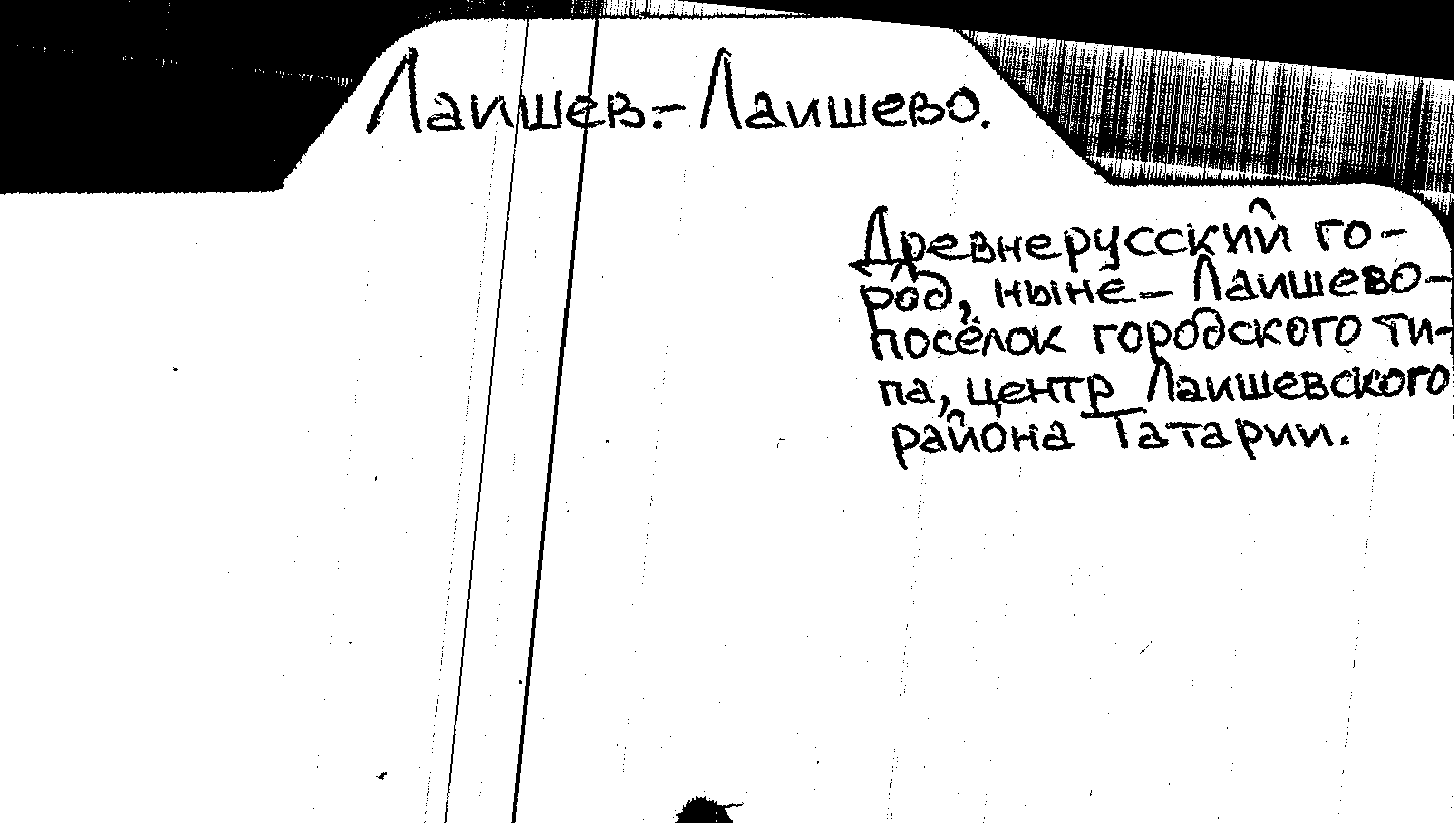 Лаишев.- Лаишево.
Древнерусский го-
род, ныне - Лаишево-
посёлок городского ти-
па, центр Лаишевского
района Татарии.